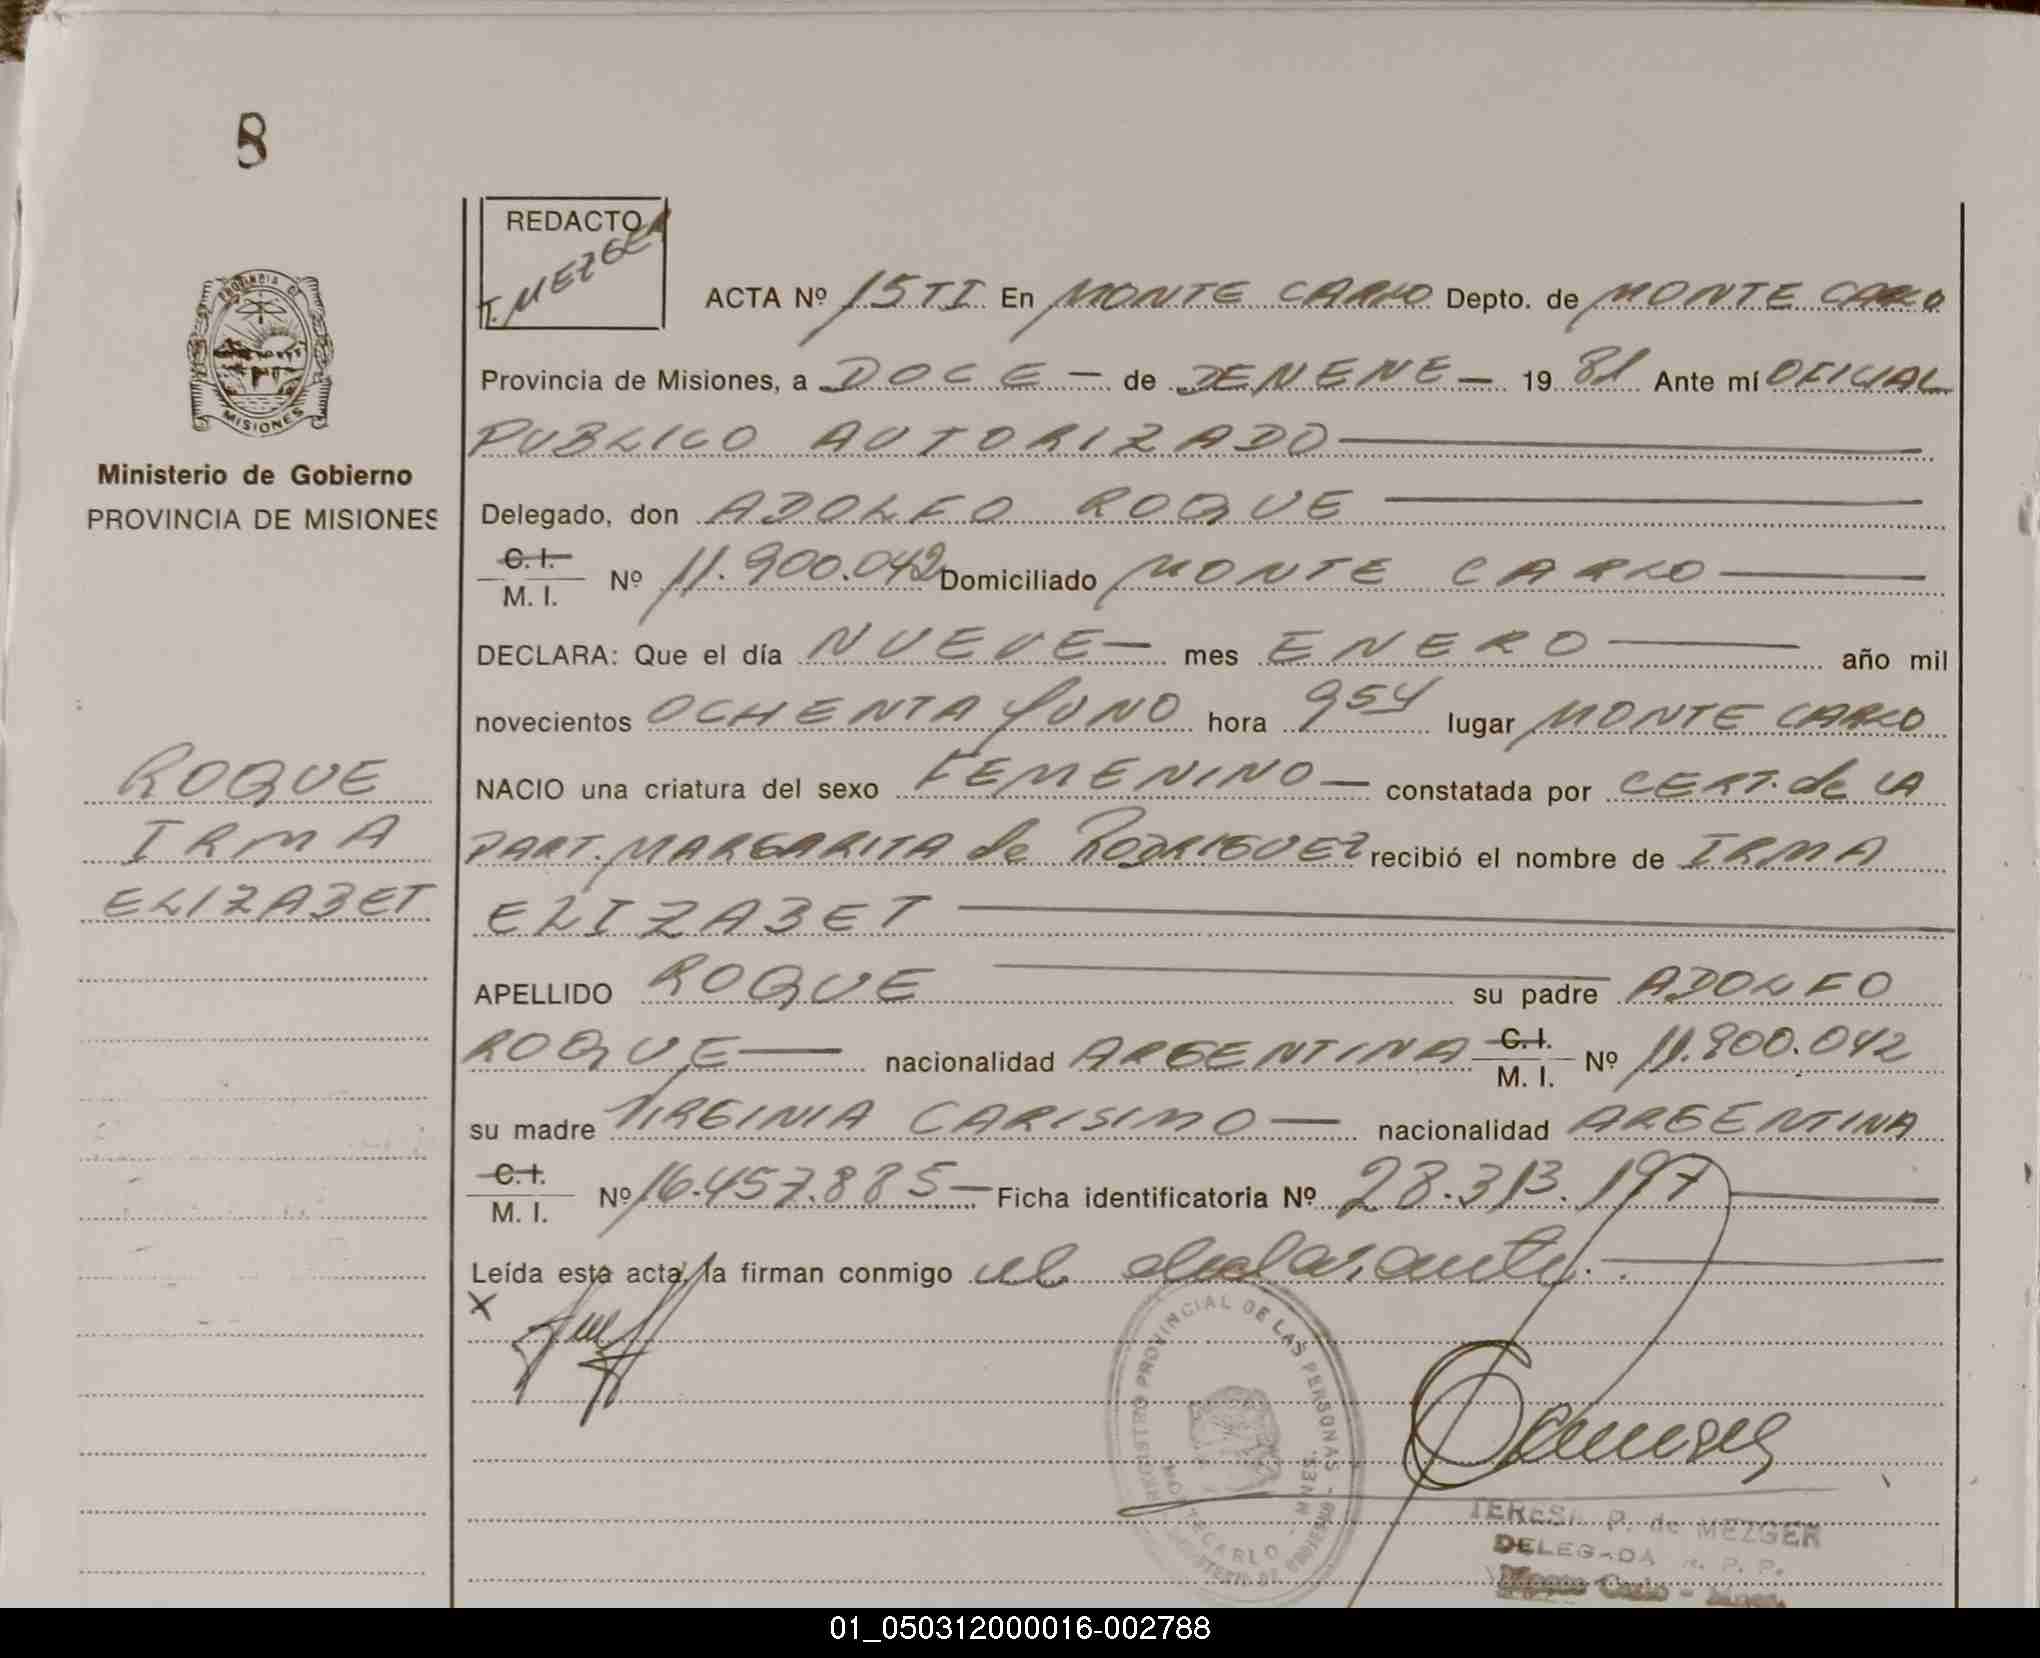 8
REDACTO
T. MEZGER
ACTA Nº 15 TI En MONTE CARLO Depto. de MONTE CARLO
Provincia de Misiones, a DOCE — de ENENE — 19 81 Ante mí OFICIAL
PUBLICO AUTORIZADO
Delegado, don ADOLFO ROQUE
C. I.
M. I. Nº 11.900.042 Domiciliado MONTE CARLO
DECLARA: Que el día NUEVE — mes ENERO año mil
novecientos OCHENTA YUNO hora 954 lugar MONTE CARLO
NACIO una criatura del sexo FEMENINO — constatada por CERT. de LA
PART. MARGARITA de RODRIGUEZ recibió el nombre de IRMA
ELIZABET
APELLIDO ROQUE su padre ADOLFO
ROQUE — nacionalidad ARGENTINA C. I.
M. I. Nº 11.900.042
su madre VIRGINIA CARISIMO — nacionalidad ARGENTINA
C. I.
M. I. Nº 16.457.885 — Ficha identificatoria Nº 28.313.197
Leída esta acta, la firman conmigo el declarante.
X
PROVINCIA DE
MISIONES
Ministerio de Gobierno
PROVINCIA DE MISIONES
ROQUE
IRMA
ELIZABET
REGISTRO PROVINCIAL DE LAS PERSONAS
MONTECARLO - MNES.
TERESA P. de MEZGER
DELEGADA R. P. P.
Monte Carlo - Mnes.
01_050312000016-002788